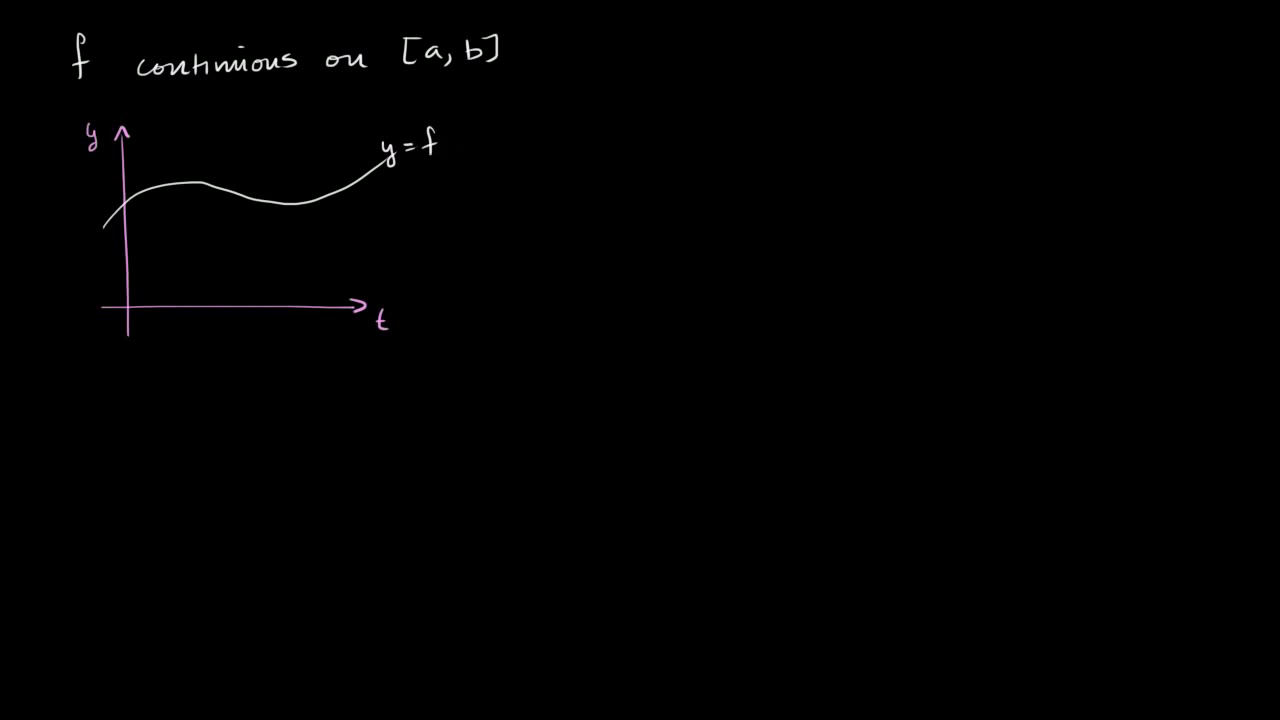 f continious on [a, b]
y
y = f
t